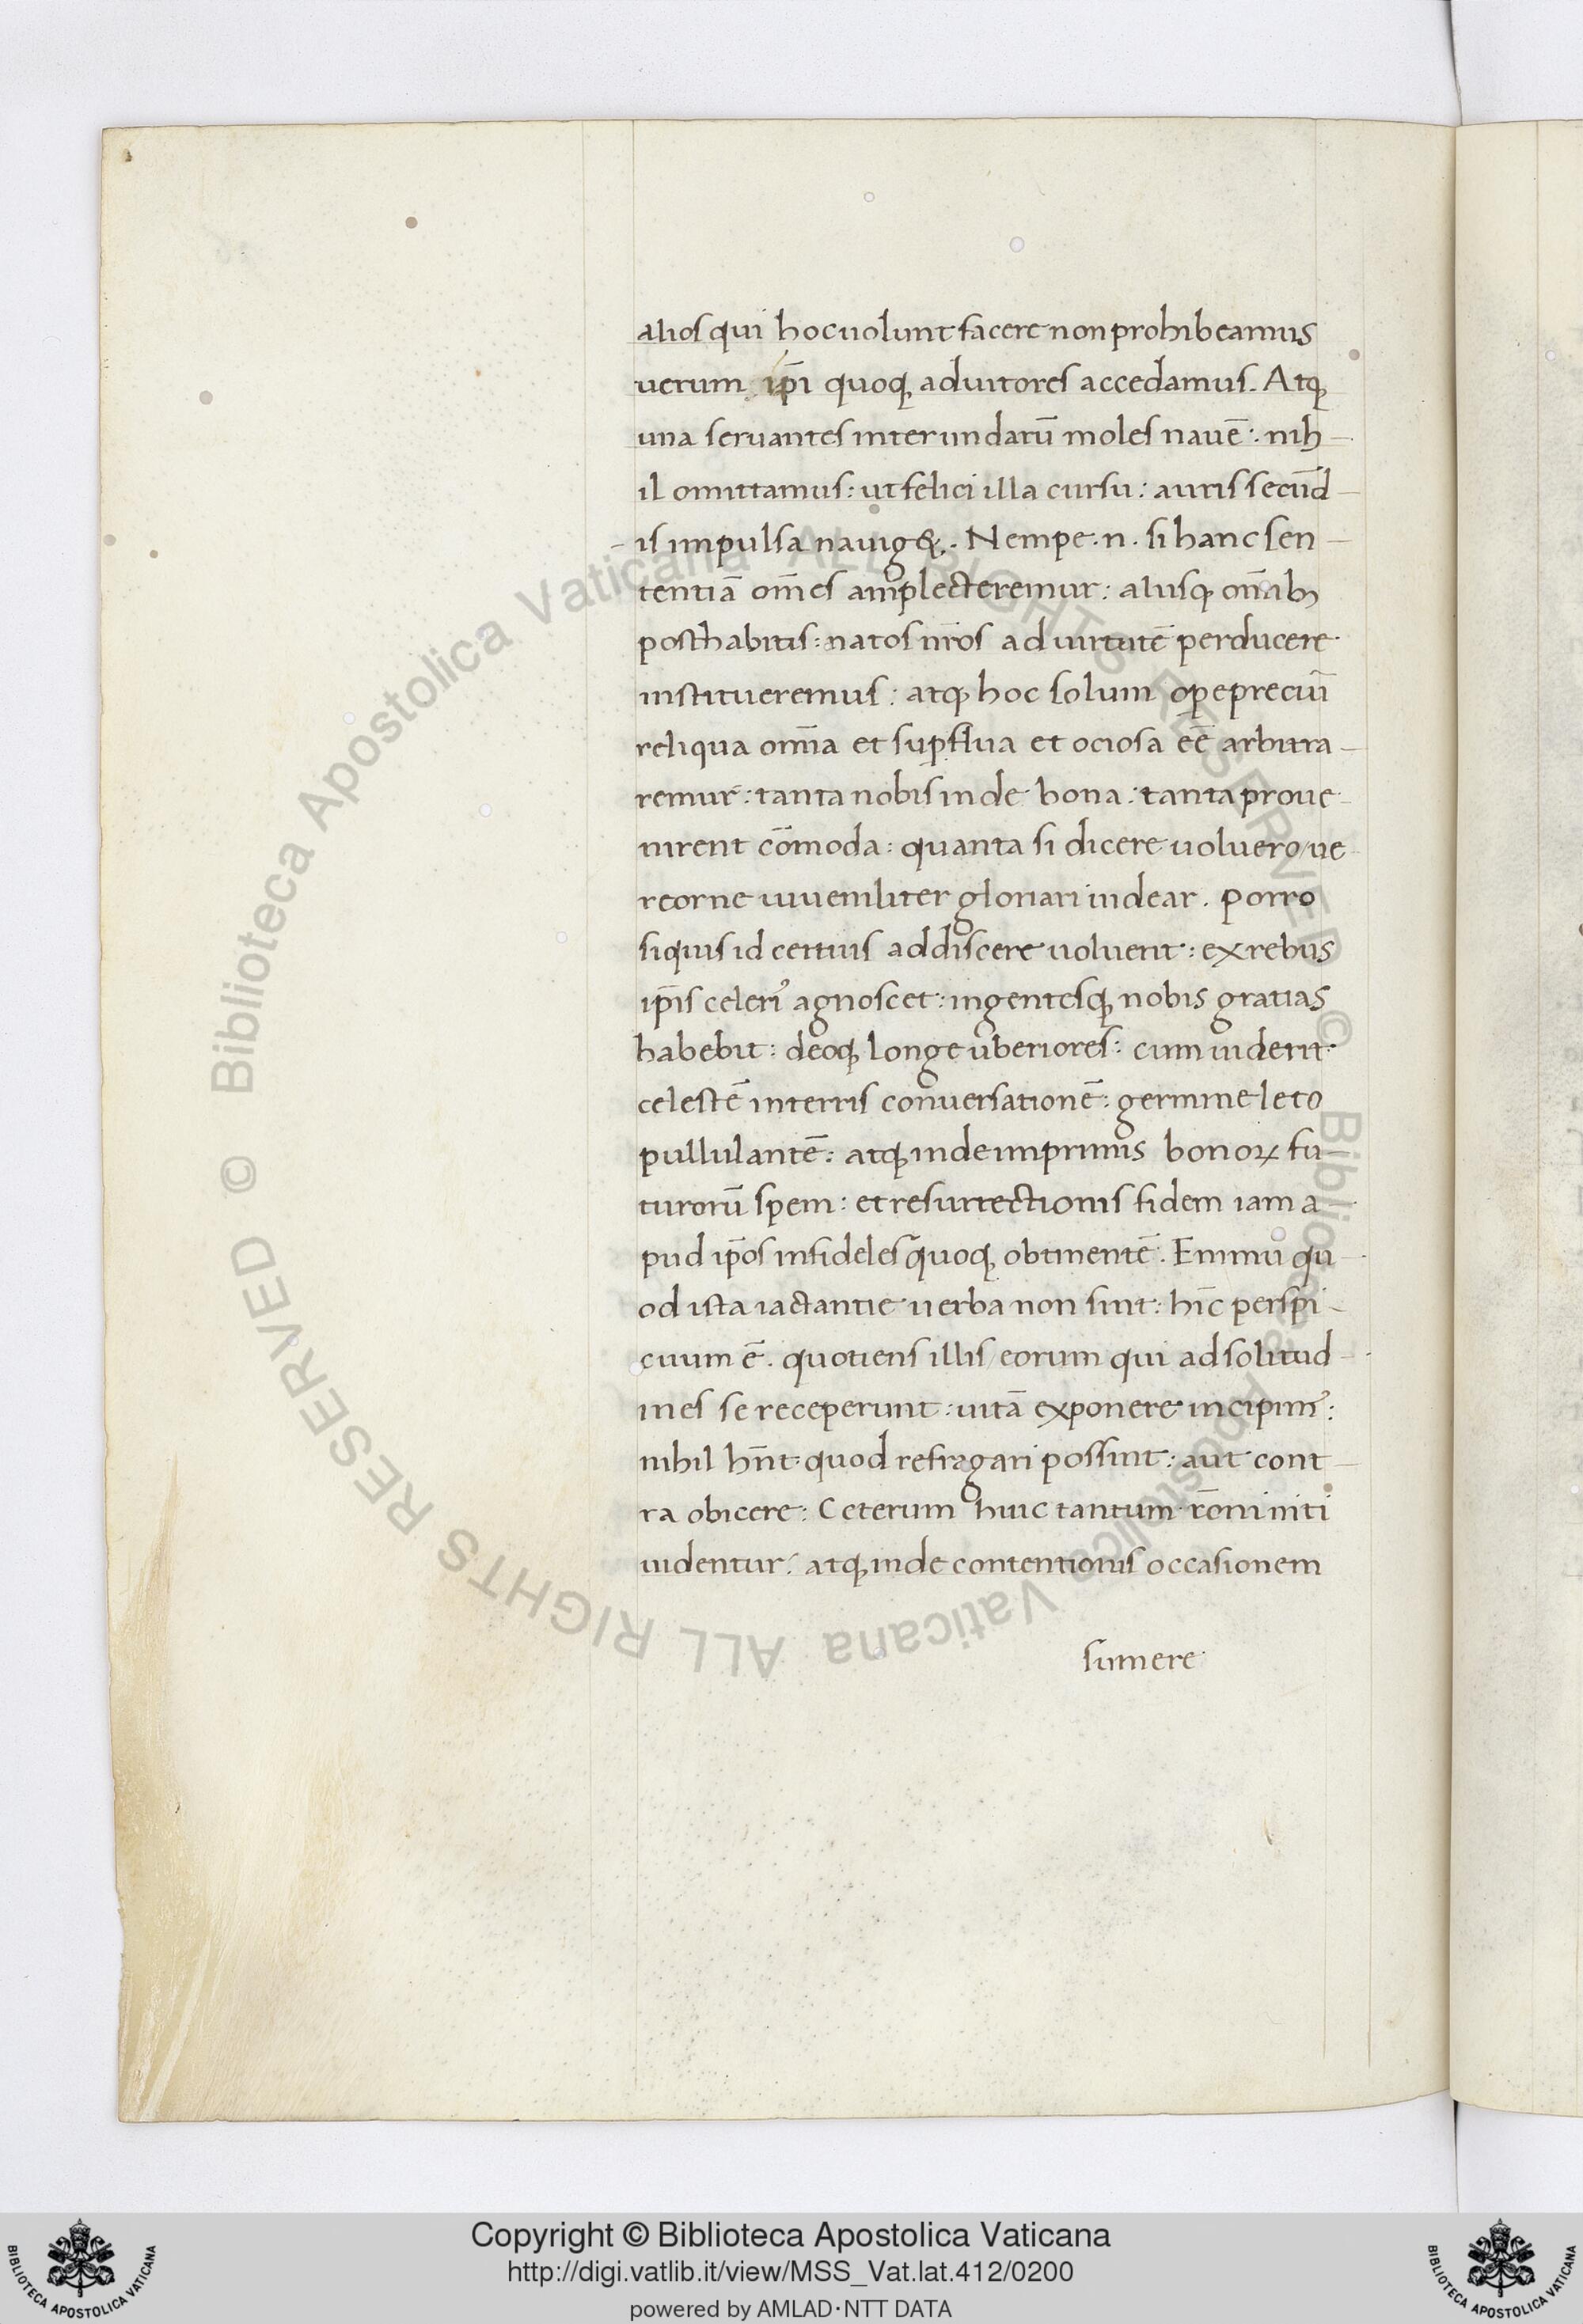 alios qui hoc uolunt facere non prohibeamus
uerum ip̄i quoq; adiutores accedamus. Atq;
una seruantes inter undarū moles nauē: nih
il omittamus: ut felici illa cursu: auris secūd
is impulsa nauig&. Nempe .n. si hanc sen
tentiā om̄es amplecteremur: aliisq; om̄ib;
posthabitis: natos nr̄os ad uirtutē perducere
institueremus: atq; hoc solum opeprecīu
reliqua om̄ia et suꝑflua et ociosa eē arbitra
remur: tanta nobis inde bona: tanta proue
nirent cōmoda: quanta si dicere uoluero/ue
reor ne iuueniliter gloriari uidear. Porro
siquis id certius addiscere uoluerit: ex rebus
ip̄is celeri⁹ agnoscet: ingentesq; nobis gratias
habebit: deoq; longe uberiores: cum uiderit
celestē in terris conuersationē: germine leto
pullulantē: atq; inde imprimis bonoꝝ fu
turorū spem: et resurrectionis fidem iam a
pud ip̄os infideles quoq; obtinentē. Enimū qu
od ista iactantie uerba non sint: hīc perspi
cuum ē. quotiens illis/eorum qui ad solitud
ines se receperunt: uitā exponere incipim⁹:
nihil hn̄t quod refragari possint: aut cont
ra obicere: Ceterum huic tantum rōni niti
uidentur: atq; inde contentionis occasionem
sumere
© Biblioteca Apostolica Vaticana ALL RIGHTS RESERVED © Biblioteca Apostolica Vaticana ALL RIGHTS RESERVED
Copyright © Biblioteca Apostolica Vaticana
http://digi.vatlib.it/view/MSS_Vat.lat.412/0200
powered by AMLAD·NTT DATA
BIBLIOTECA APOSTOLICA VATICANA
BIBLIOTECA APOSTOLICA VATICANA